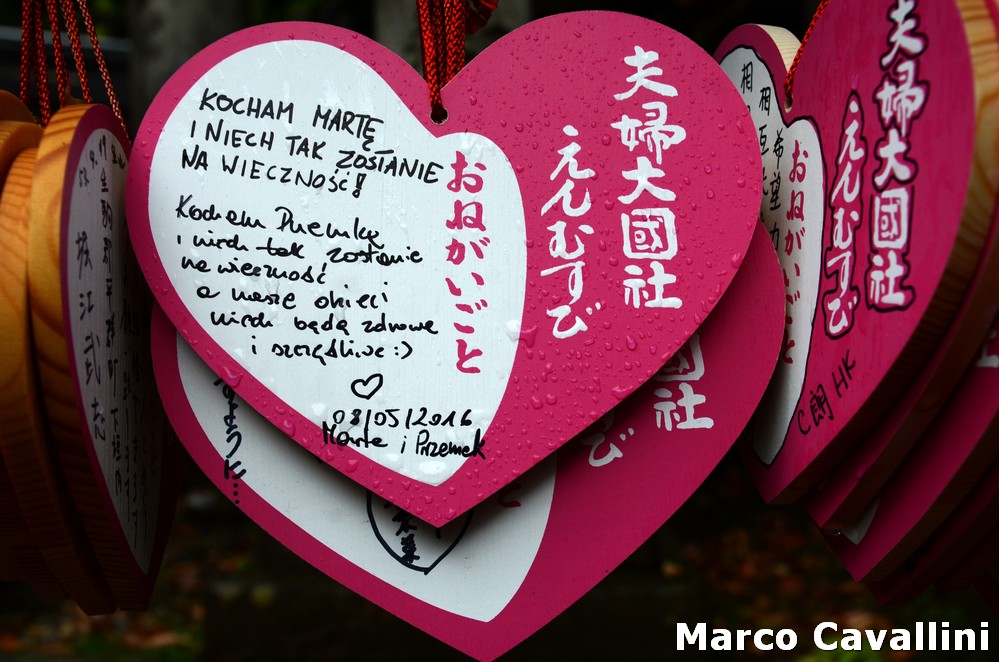 KOCHAM MARTĘ
I NIECH TAK ZOSTANIE
NA WIECZNOŚĆ!
Kocham Przemka
i niech tak zostanie
na wieczność
a nasze dzieci
niech będą zdrowe
i szczęśliwe :)
♡
08/05/2016
Marta i Przemek
おねがいごと
夫婦大國社
えんむすび
國社
び
ように...
夫婦大國社
えんむすび
おねがいごと
相
希望
C朗 HK
堀江武志
Marco Cavallini